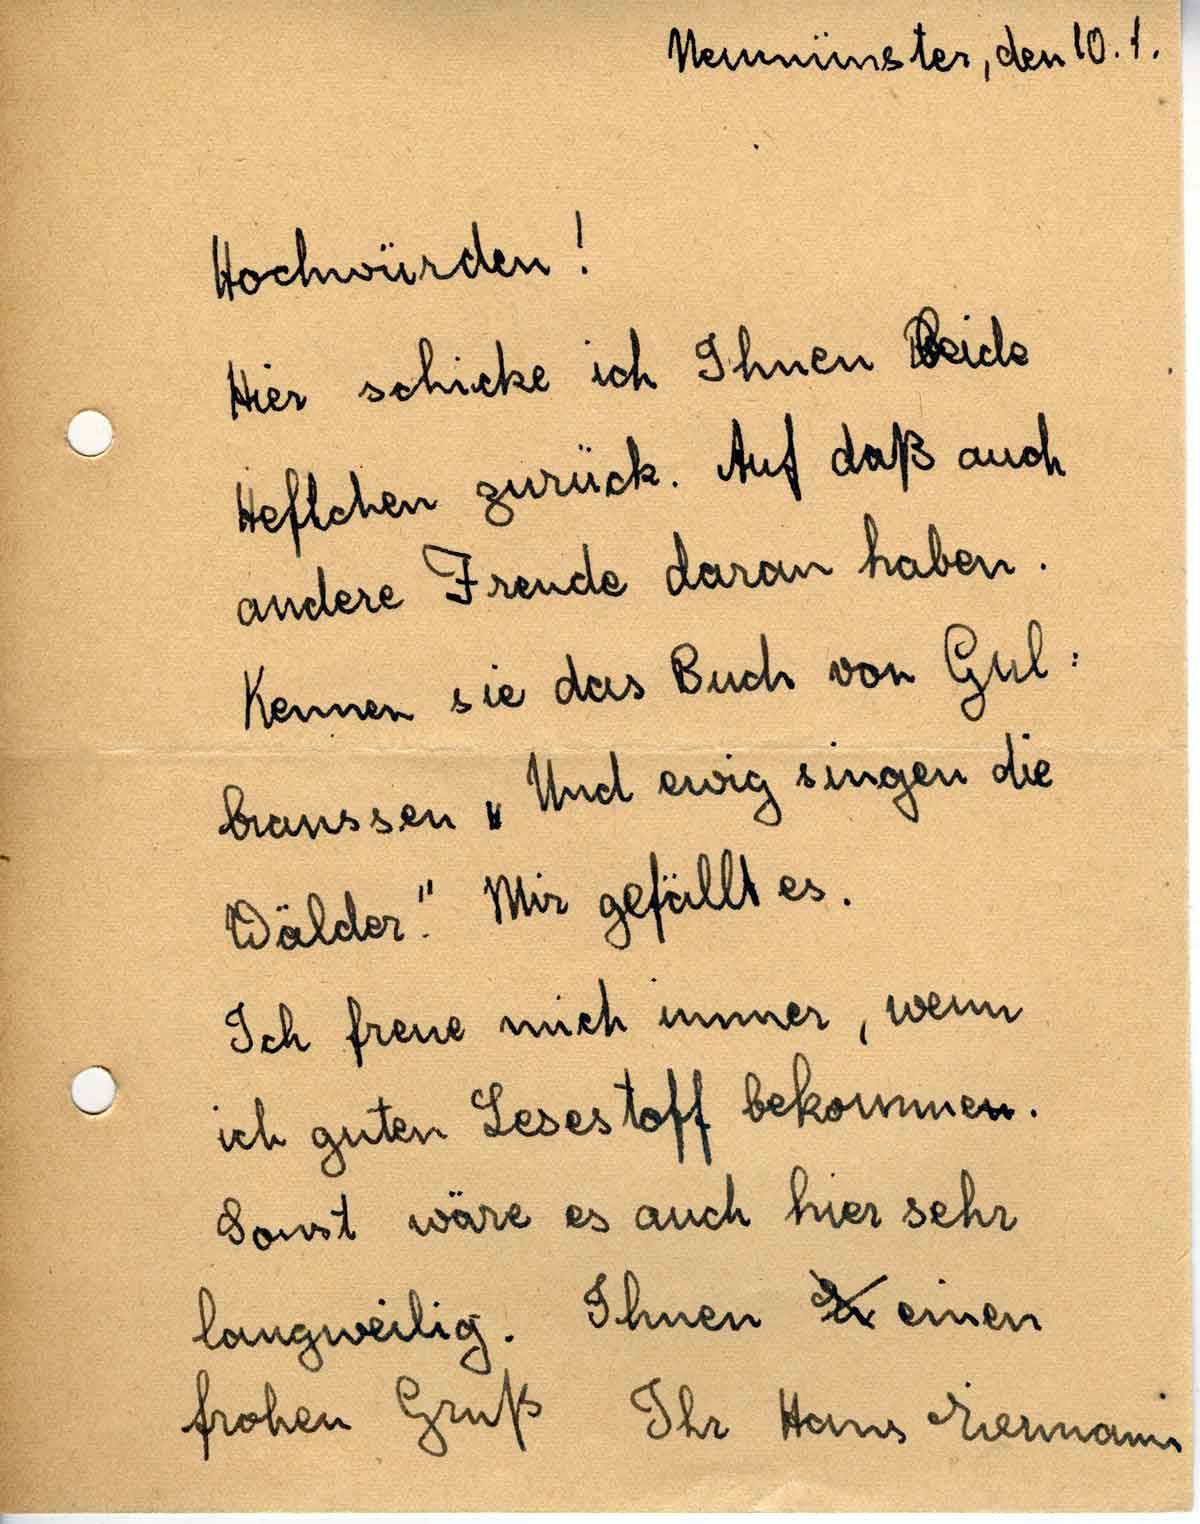 Neumünster, den 10. 1.
Hochwürden!
Hier schicke ich Ihnen Beide
Heftchen zurück. Auf daß auch
andere Freude daran haben.
Kennen sie das Buch von Gul=
branssen „Und ewig singen die
Wälder." Mir gefällt es.
Ich freue mich immer, wenn
ich guten Lesestoff bekommen.
Sonst wäre es auch hier sehr
langweilig. Ihnen einen
frohen Gruß Ihr Hans